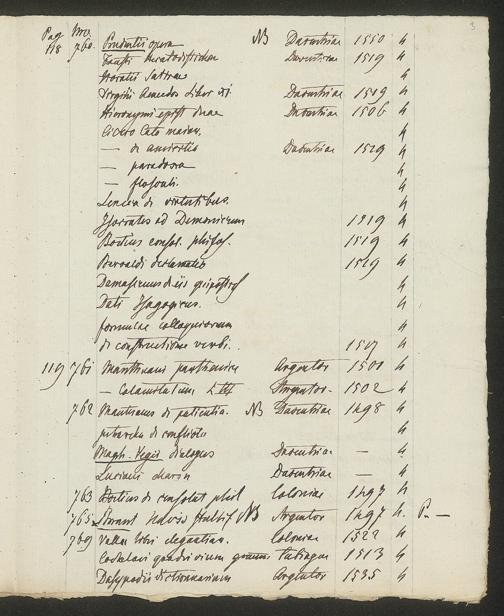 3
Pag Nro.
118 760. Prudentii opera NB Daventriae 1550 4
Fausti Daventriae 1519 4
Horatii Satirae 4
Virgilii Aeneidos Liber XI. Daventriae 1519 4
Hieronymi epist. duae Daventriae 1506 4
Cicero Cato maior. 4
— de amicitia Daventriae 1529 4
— paradoxa 4
— 4
Seneca de virtutibus. 4
Isocrates ad Demonicum 1519 4
Boetius consol. philos. 1519 4
Beroaldi declamatio 1519 4
Damascenus 4
Dati Isagogicus. 4
formulae colloquiorum 4
de constructione verbi. 1517 4
119 761 Mantuani parthenice Argentor 1501 4
— Calamitatum Argentor. 1502 4
762 Mantuanus de patientia. NB Daventriae 1498 4
petrarcha de conflictu 4
Maph. Vegii dialogus Daventriae — 4
Luciani Daventriae — 4
763 Boetius de consolat phil Coloniae 1497 4
765. Brant Navis stultif NB Argentor 1497 4. P. —
769 Vallae libri elegantiar. Coloniae 1522 4
quadrivium Tubingae 1513 4
Dasypodii dictionarium Argentor 1535 4